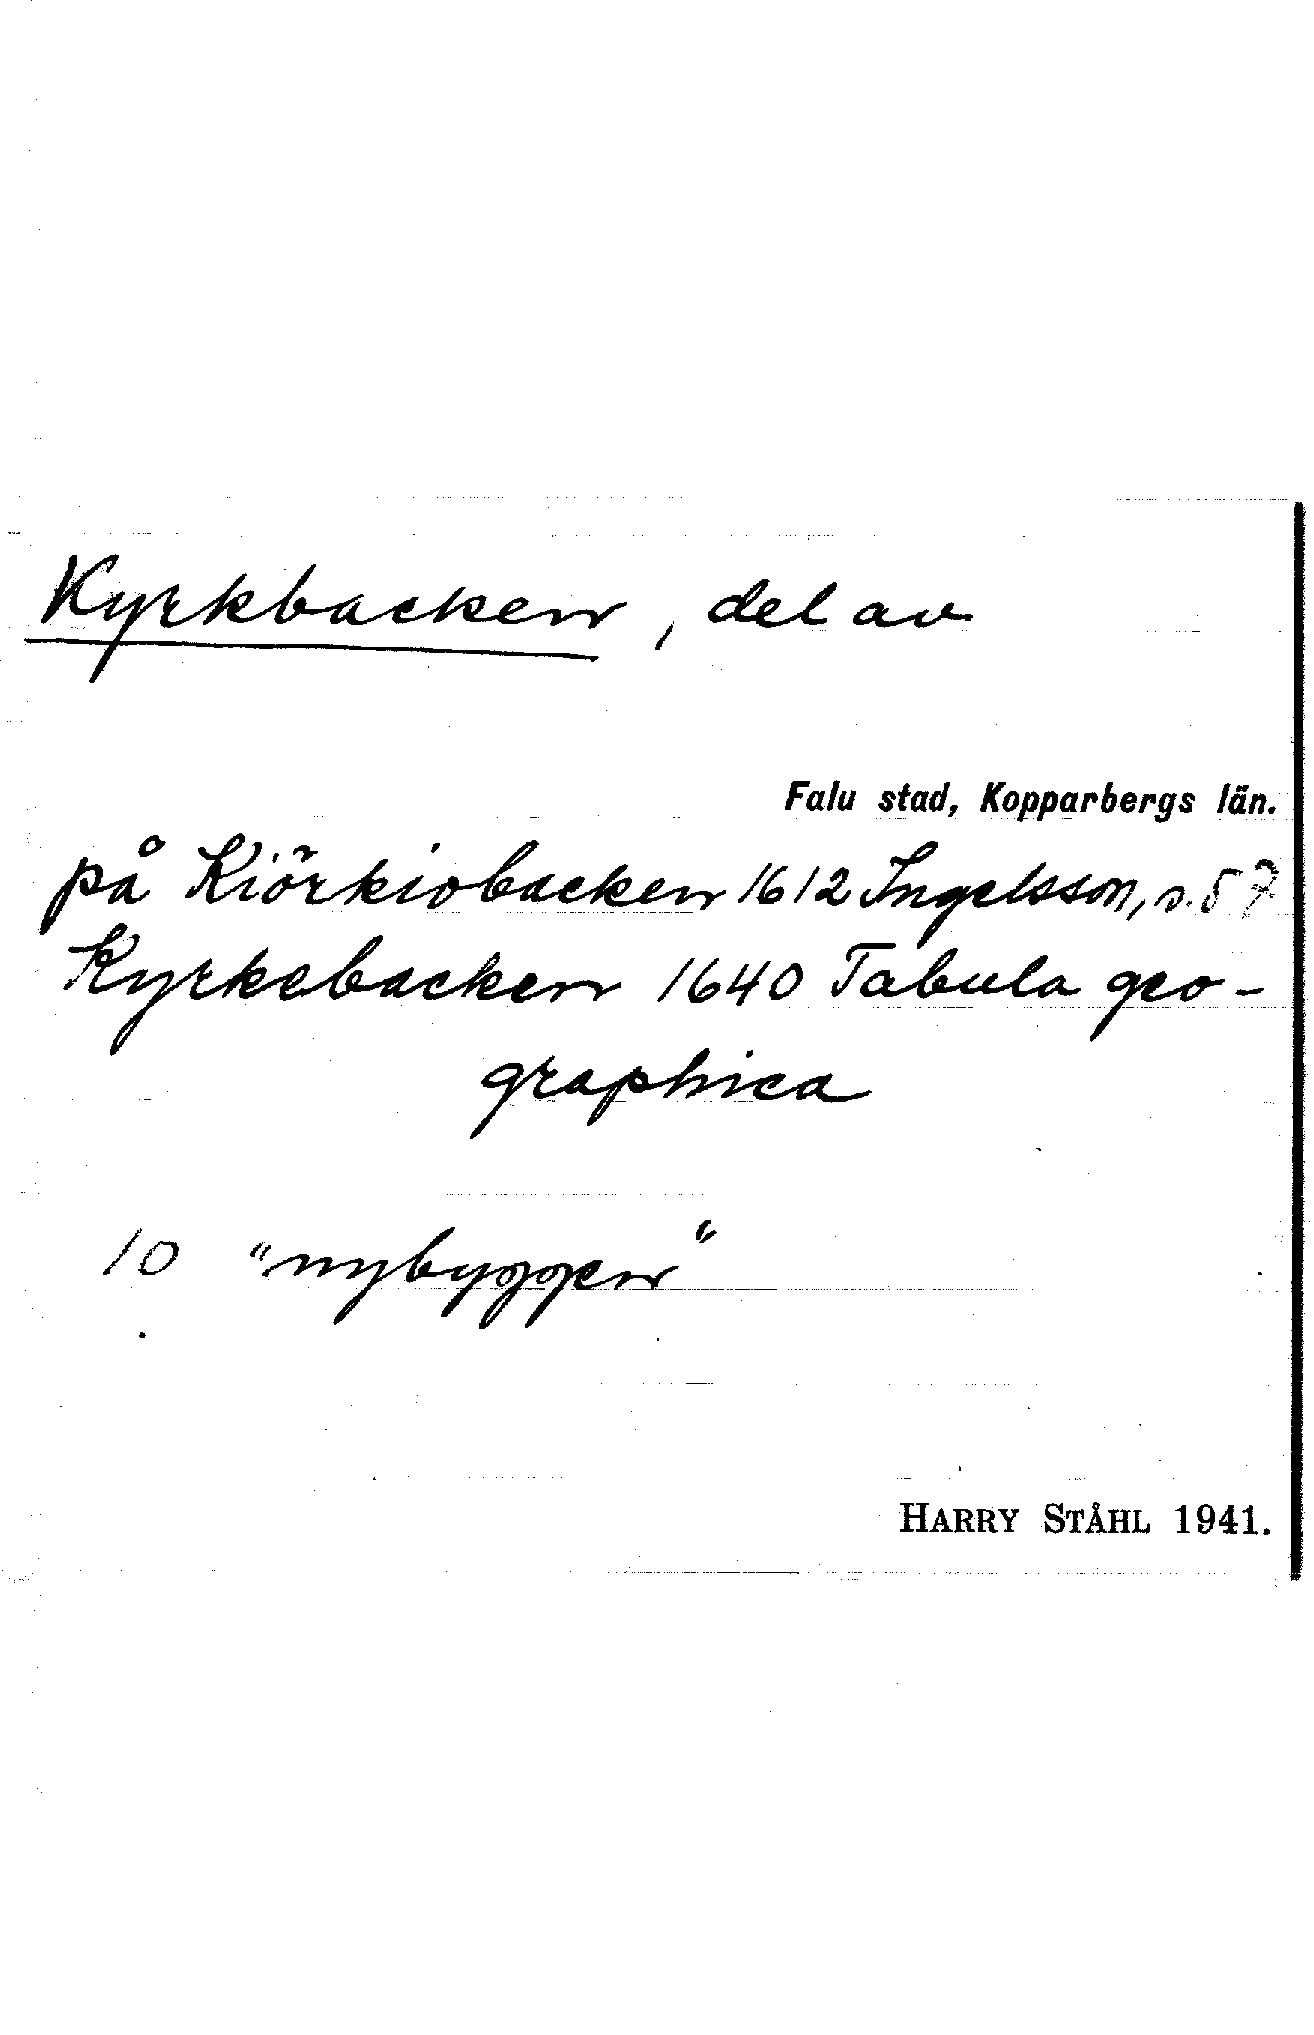 Kyrkbacken, del av
Falu stad, Kopparbergs län.
på Kiörkiobacken 1612 Ingelsson, s. 57
Kyrkebacken 1640 Tabula geo-
graphica
10 "nybyggen"
HARRY STÅHL 1941.